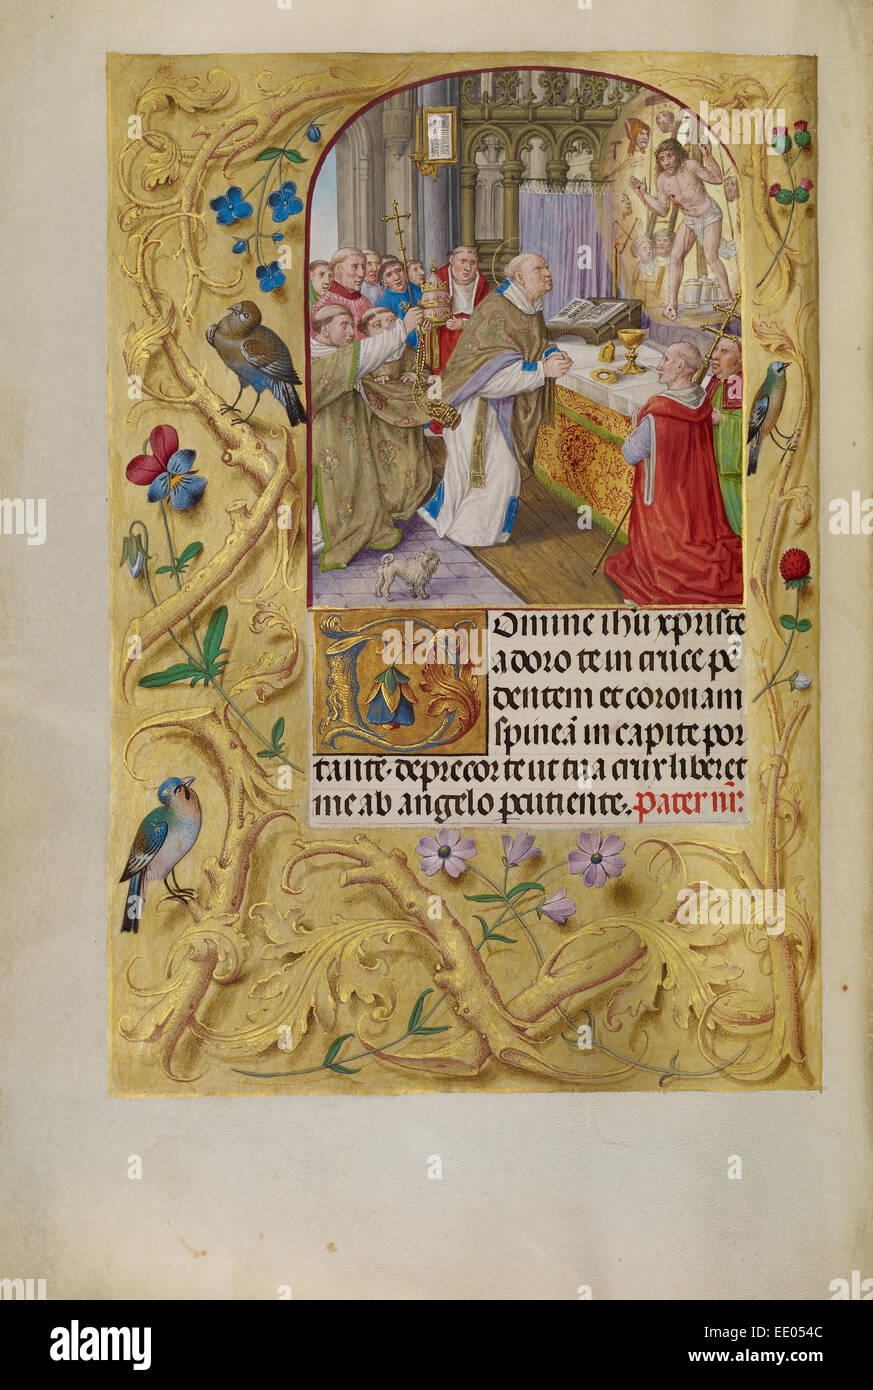 Domine ihu xp̄riste
adoro te in cruce pē
dentem et coronam
spineā in capite por
tantē. deprecor te ut tua crux liberet
me ab angelo pcutiente. Pater nr̄:
alamy
Image ID: EE054C
www.alamy.com